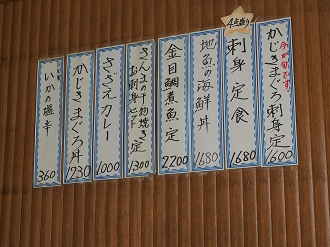 今が旬です。
かじきまぐろ刺身定
1600
4点盛り
刺身定食
1680
地魚の海鮮丼
1680
金目鯛煮魚定
2200
さんまの干物焼き定
お刺身セット
1300
さざえカレー
1000
かじきまぐろ丼
1230
いかの塩辛
360